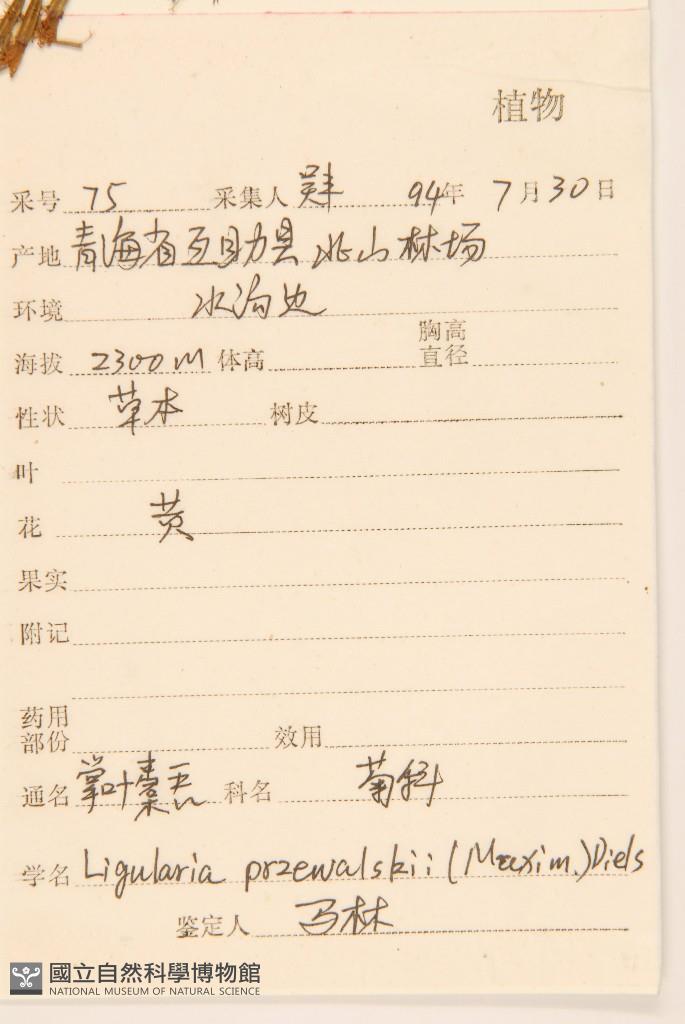 植物
采号 75 采集人 94年 7月30日
产地 青海省互助县北山林场
环境 水沟边
海拔 2300m 体高 胸高直径
性状 草本 树皮
叶
花 黄
果实
附记
药用部份 效用
通名 掌叶橐吾 科名 菊科
学名 Ligularia przewalskii (Maxim.) Diels
鉴定人 马林
國立自然科學博物館
NATIONAL MUSEUM OF NATURAL SCIENCE